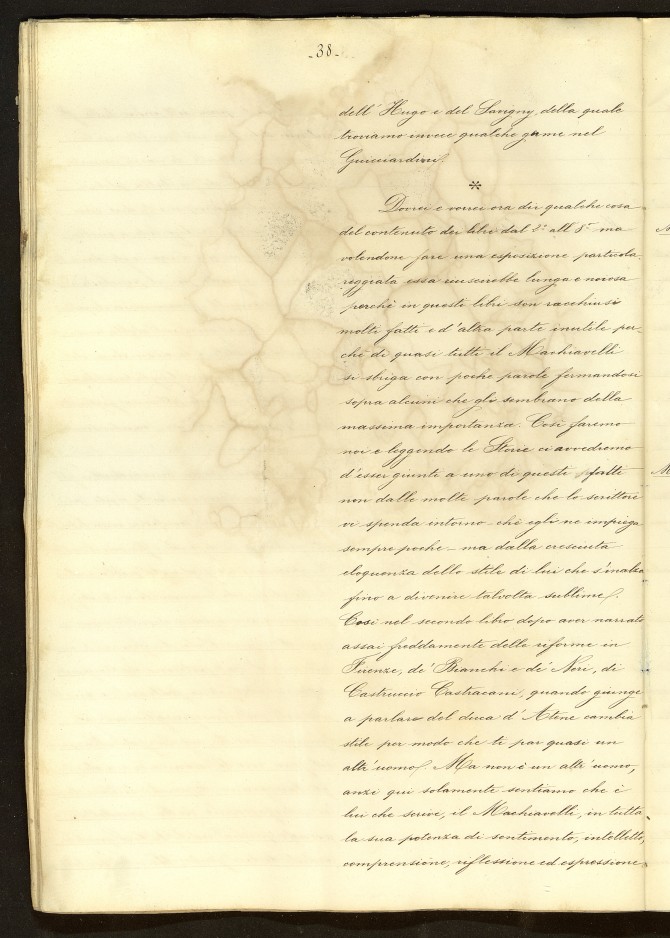 - 38 -
dell' Hugo e del Savigny, della quale
troviamo invece qualche germe nel
Guicciardini.
*
Dovrei e vorrei ora dir qualche cosa
del contenuto dei libri dal 2º all' 8º ma
volendone fare una esposizione particola-
reggiata essa riuscirebbe lunga e noiosa
perchè in questi libri son racchiusi
molti fatti e d'altra parte inutile per-
chè di quasi tutti il Machiavelli
si sbriga con poche parole fermandosi
sopra alcuni che gli sembrano della
massima importanza. Così faremo
noi e leggendo le Storie ci avvedremo
d'esser giunti a uno di questi fatti
non dalle molte parole che lo scrittore
vi spenda intorno - chè egli ne impiega
sempre poche - ma dalla cresciuta
eloquenza dello stile di lui che s'inalza
fino a divenire talvolta sublime.
Così nel secondo libro dopo aver narrato
assai freddamente delle riforme in
Firenze, de' Bianchi e de' Neri, di
Castruccio Castracani, quando giunge
a parlare del duca d'Atene cambia
stile per modo che ti par quasi un
altr'uomo. Ma non è un altr'uomo,
anzi qui solamente sentiamo che è
lui che scrive, il Machiavelli, in tutta
la sua potenza di sentimento, intelletto,
comprensione, riflessione ed espressione.